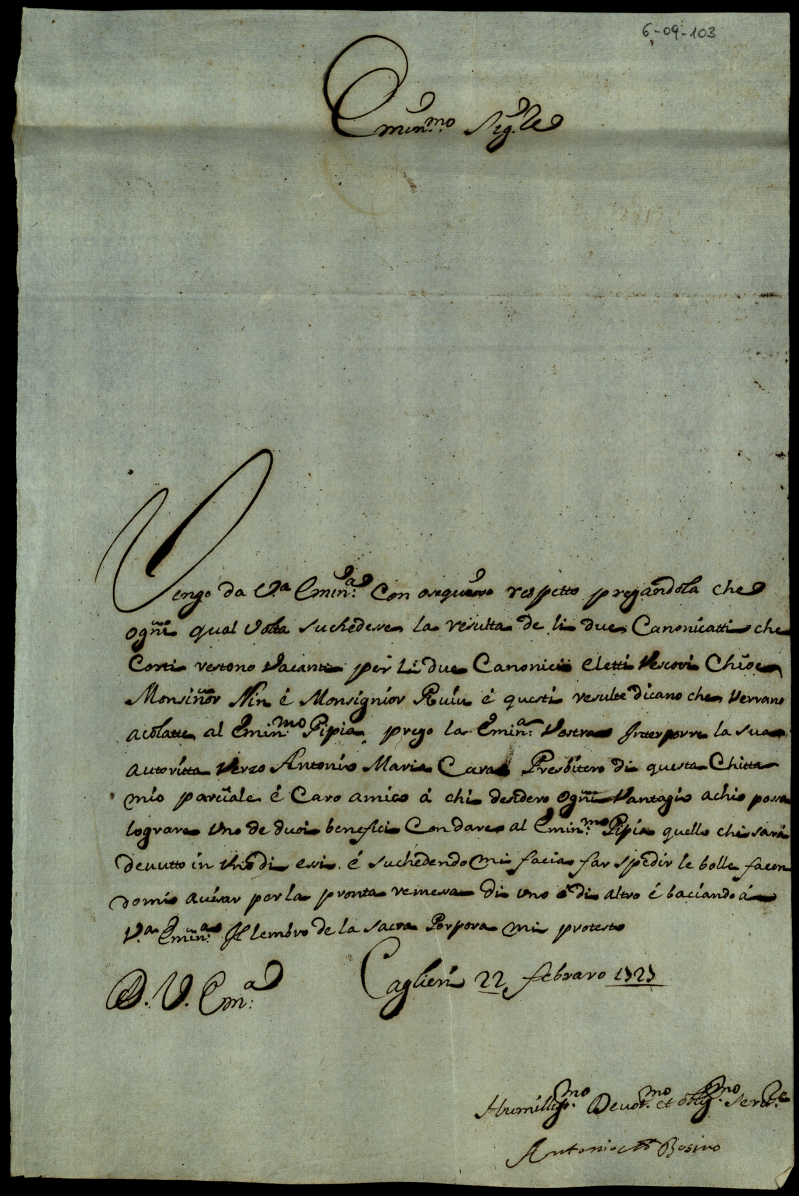 6-09-103
Emin.mo Sig.re
Vengo da V.a Emin.a con osequioso respetto pregandola che
ogni qual volta suchedese la resulta de li due Canonicatti che
Corti restono vacanti per li due Canonici eletti Vescovi Chioe
Monsiñor Nin é Monsignior Ruiu é questi resulte dicano che verrano
acolate al Emin.mo Pipia, prego la Emin.a Vostra Interporre la sua
autoritta verzo Antonio Maria Cara Presbitero di questa Chitta
mio parciale é Caro amico á chi desidero ogni vantagio achio possa
lograre uno de duoi benefici con dare al Emin.mo Pipia quello che sará
devutto in uno di essi. é suchedendo mi facia far spedir le bolle facen
domi avisar por la pronta remessa di uno ó di altro é baciando á
V.a Emin.a Il lembro de la sacra Porpora mi protesto
D. V. Em.a
Caglieri 22 febraro 1727
Humilliss.mo Devot.mo et oblig.mo Serv.re
Antonio Bosino